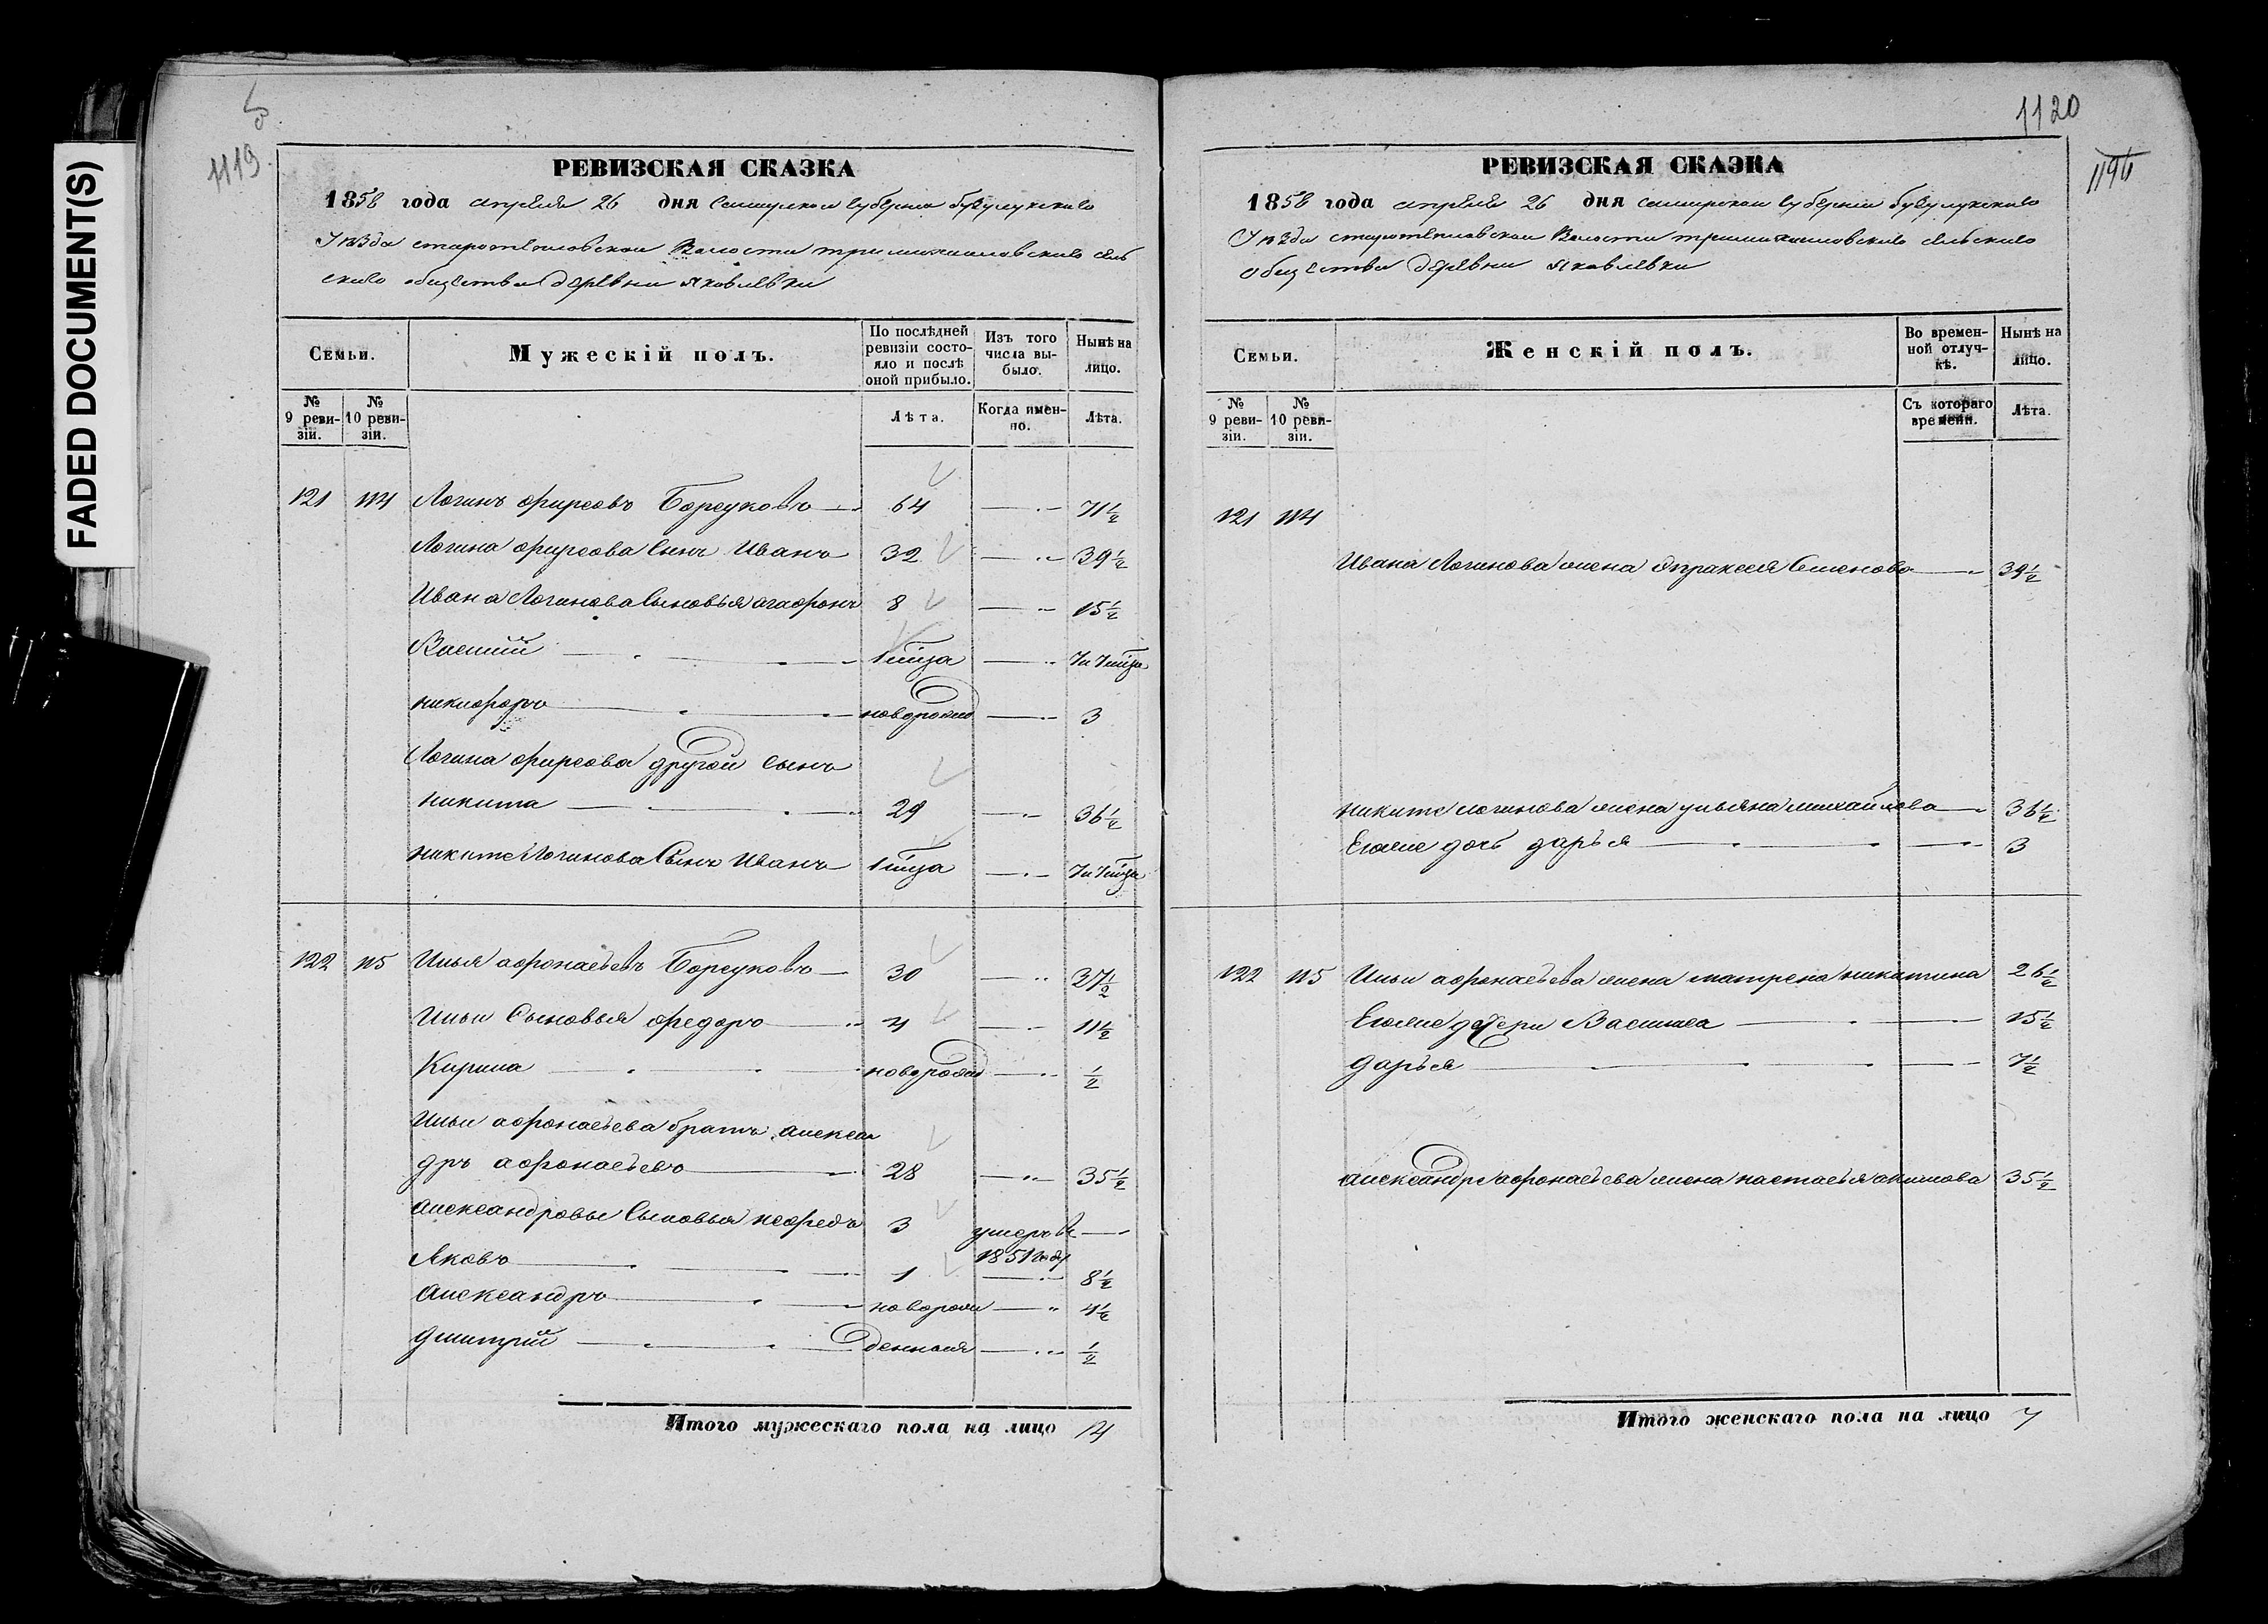 FADED DOCUMENT(S)
1119
РЕВИЗСКАЯ СКАЗКА
1858 года апреля 26 дня Самарской губернии бузулукскаго
Уѣзда старотепловской Волости тримихаиловскаго сель
скаго общества деревни Яковлевки
Семьи.
Мужескій полъ.
По послѣдней ревизіи состояло и послѣ оной прибыло.
Изъ того числа выбыло.
Нынѣ на лицо.
№ 9 ревизіи.
№ 10 ревизіи.
Лѣта.
Когда именно.
Лѣта.
121 114 Логинъ фирсовъ Борсуковъ 64 71½
Логина фирсова Сынъ Иванъ 32 39½
Ивана Логинова Сыновья агафонъ 8 15½
Василий 1 мца 7 и 7 мца
никифоръ новорожд 3
Логина фирсова другой сынъ
никита 29 36½
никите Логинова Сынъ Иванъ 1 мца 7 и 7 мца
122 115 Илья афонасьевъ Борсуковъ 30 37½
Ильи Сыновья федоръ 4 11½
Кирила новорожд ½
Ильи афонасьева братъ алексан
дръ афонасьевъ 28 35½
александровы Сыновья нефедъ 3 умеръ в
1851 году
Яковъ 1 8½
Александръ новорож 4½
дмитрий денныя ½
Итого мужескаго пола на лицо 14
1120
РЕВИЗСКАЯ СКАЗКА
1858 года апреля 26 дня самарской губернии бузулукскаго
Уѣзда старотепловской Волости тримихаиловскаго сельскаго
общества деревни Яковлевки
Семьи.
Женскій полъ.
Во временной отлучкѣ.
Нынѣ на лицо.
№ 9 ревизіи.
№ 10 ревизіи.
Съ котораго времени.
Лѣта.
121 114
Ивана Логинова жена апраксея Семенова 39½
никите логинова жена ульяна михайлова 36½
Егоже дочь дарья 3
122 115 Ильи афонасьева жена матрена никитина 26½
Егоже дочери Василиса 15½
дарья 7½
александре афонасьева жена настасья акимова 35½
Итого женскаго пола на лицо 7